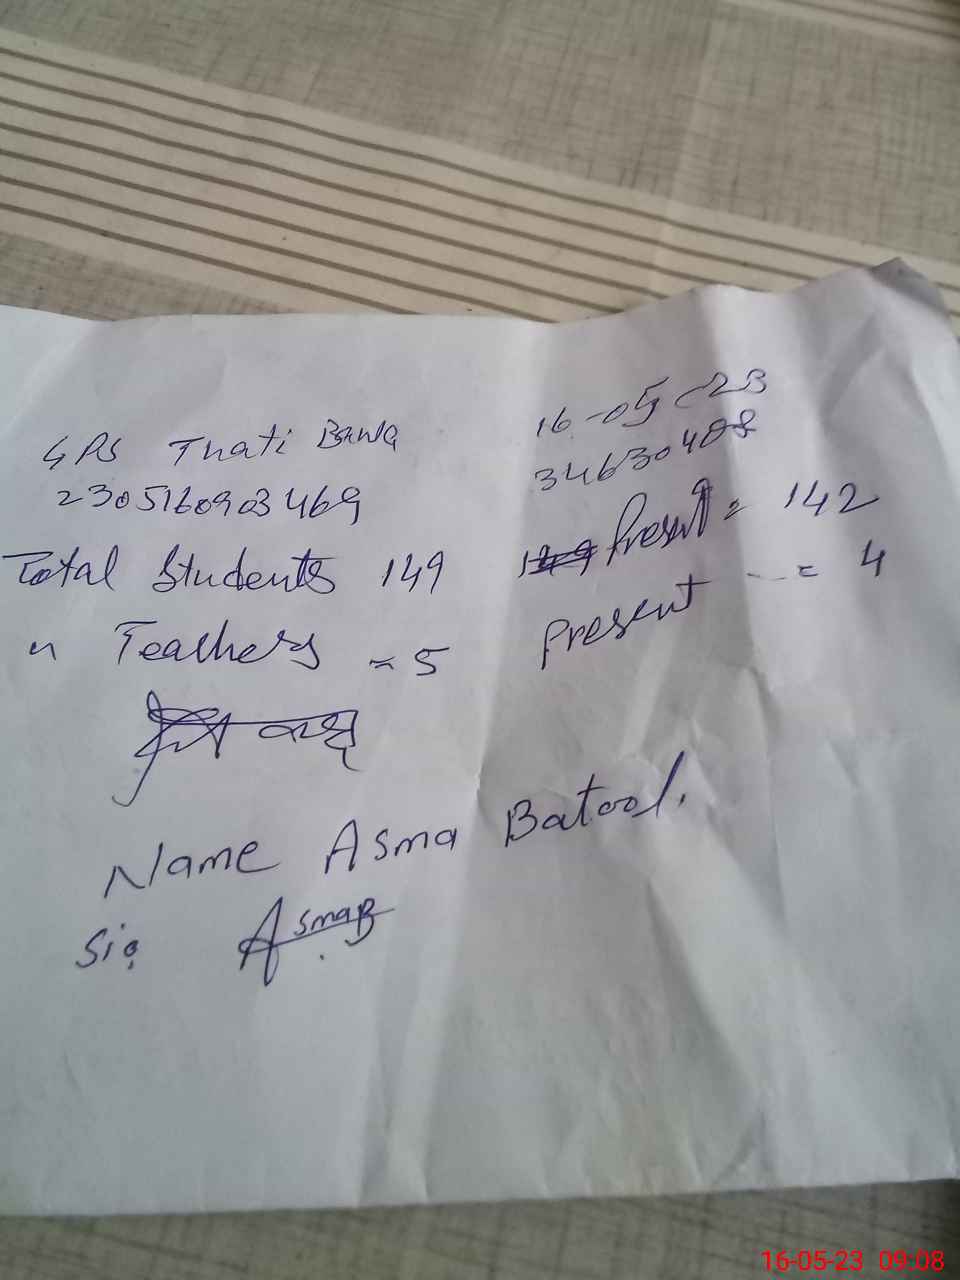 GPS Thati Bawa 16-05-23
2305160903469 34630408
Total Students 149 Present = 142
" Teachers = 5 Present = 4
Name Asma Batool.
Sig AsmaB
16-05-23 09:08